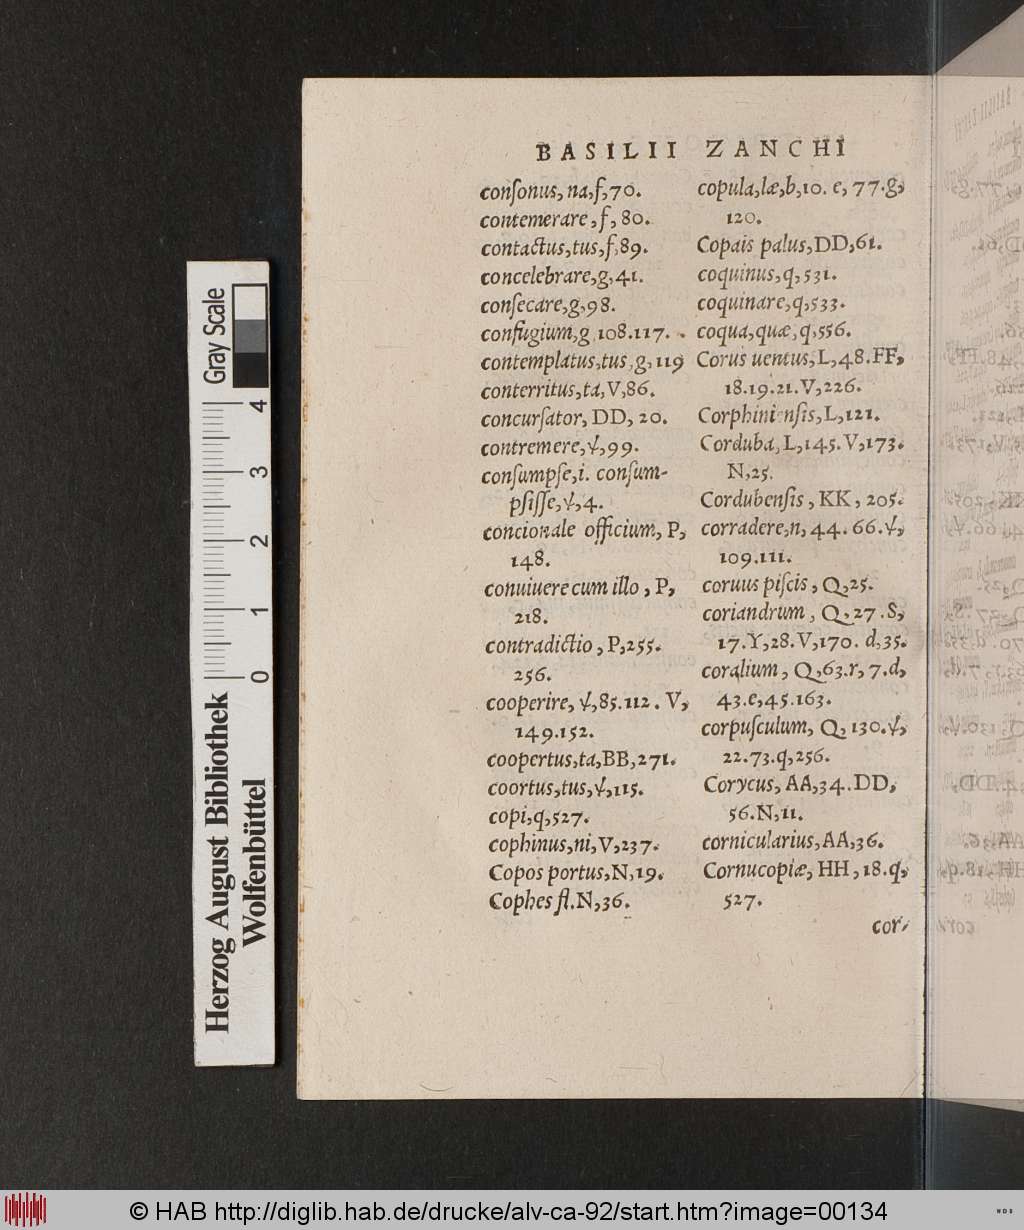 BASILII ZANCHI
conſonus, na, f, 70.
contemerare, f, 80.
contactus, tus, f, 89.
concelebrare, g, 41.
conſecare, g, 98.
confugium, g 108.117.
contemplatus, tus, g, 119
conterritus, ta, V, 86.
concurſator, DD, 20.
contremere, ψ, 99.
conſumpſe, i. conſum-
pſiſſe, ψ, 4.
concionale officium, P,
148.
conuiuere cum illo, P,
218.
contradictio, P, 255.
256.
cooperire, ψ, 85.112. V,
149.152.
coopertus, ta, BB, 271.
coortus, tus, ψ, 115.
copi, q, 527.
cophinus, ni, V, 237.
Copos portus, N, 19.
Cophes fl. N, 36.
copula, læ, b, 10. e, 77. g,
120.
Copais palus, DD, 61.
coquinus, q, 531.
coquinare, q, 533.
coqua, quæ, q, 556.
Corus uentus, L, 48. FF,
18.19.21. V, 226.
Corphinienſis, L, 121.
Corduba, L, 145. V, 173.
N, 25.
Cordubenſis, KK, 205.
corradere, n, 44. 66. ψ,
109.111.
coruus piſcis, Q, 25.
coriandrum, Q, 27. S,
17. Y, 28. V, 170. d, 35.
coralium, Q, 63. r, 7. d,
43. e, 45.163.
corpuſculum, Q, 130. ψ,
22.73. q, 256.
Corycus, AA, 34. DD,
56. N, 11.
cornicularius, AA, 36.
Cornucopiæ, HH, 18. q,
527.
cor-
Gray Scale
0 1 2 3 4
Herzog August Bibliothek
Wolfenbüttel
© HAB http://diglib.hab.de/drucke/alv-ca-92/start.htm?image=00134